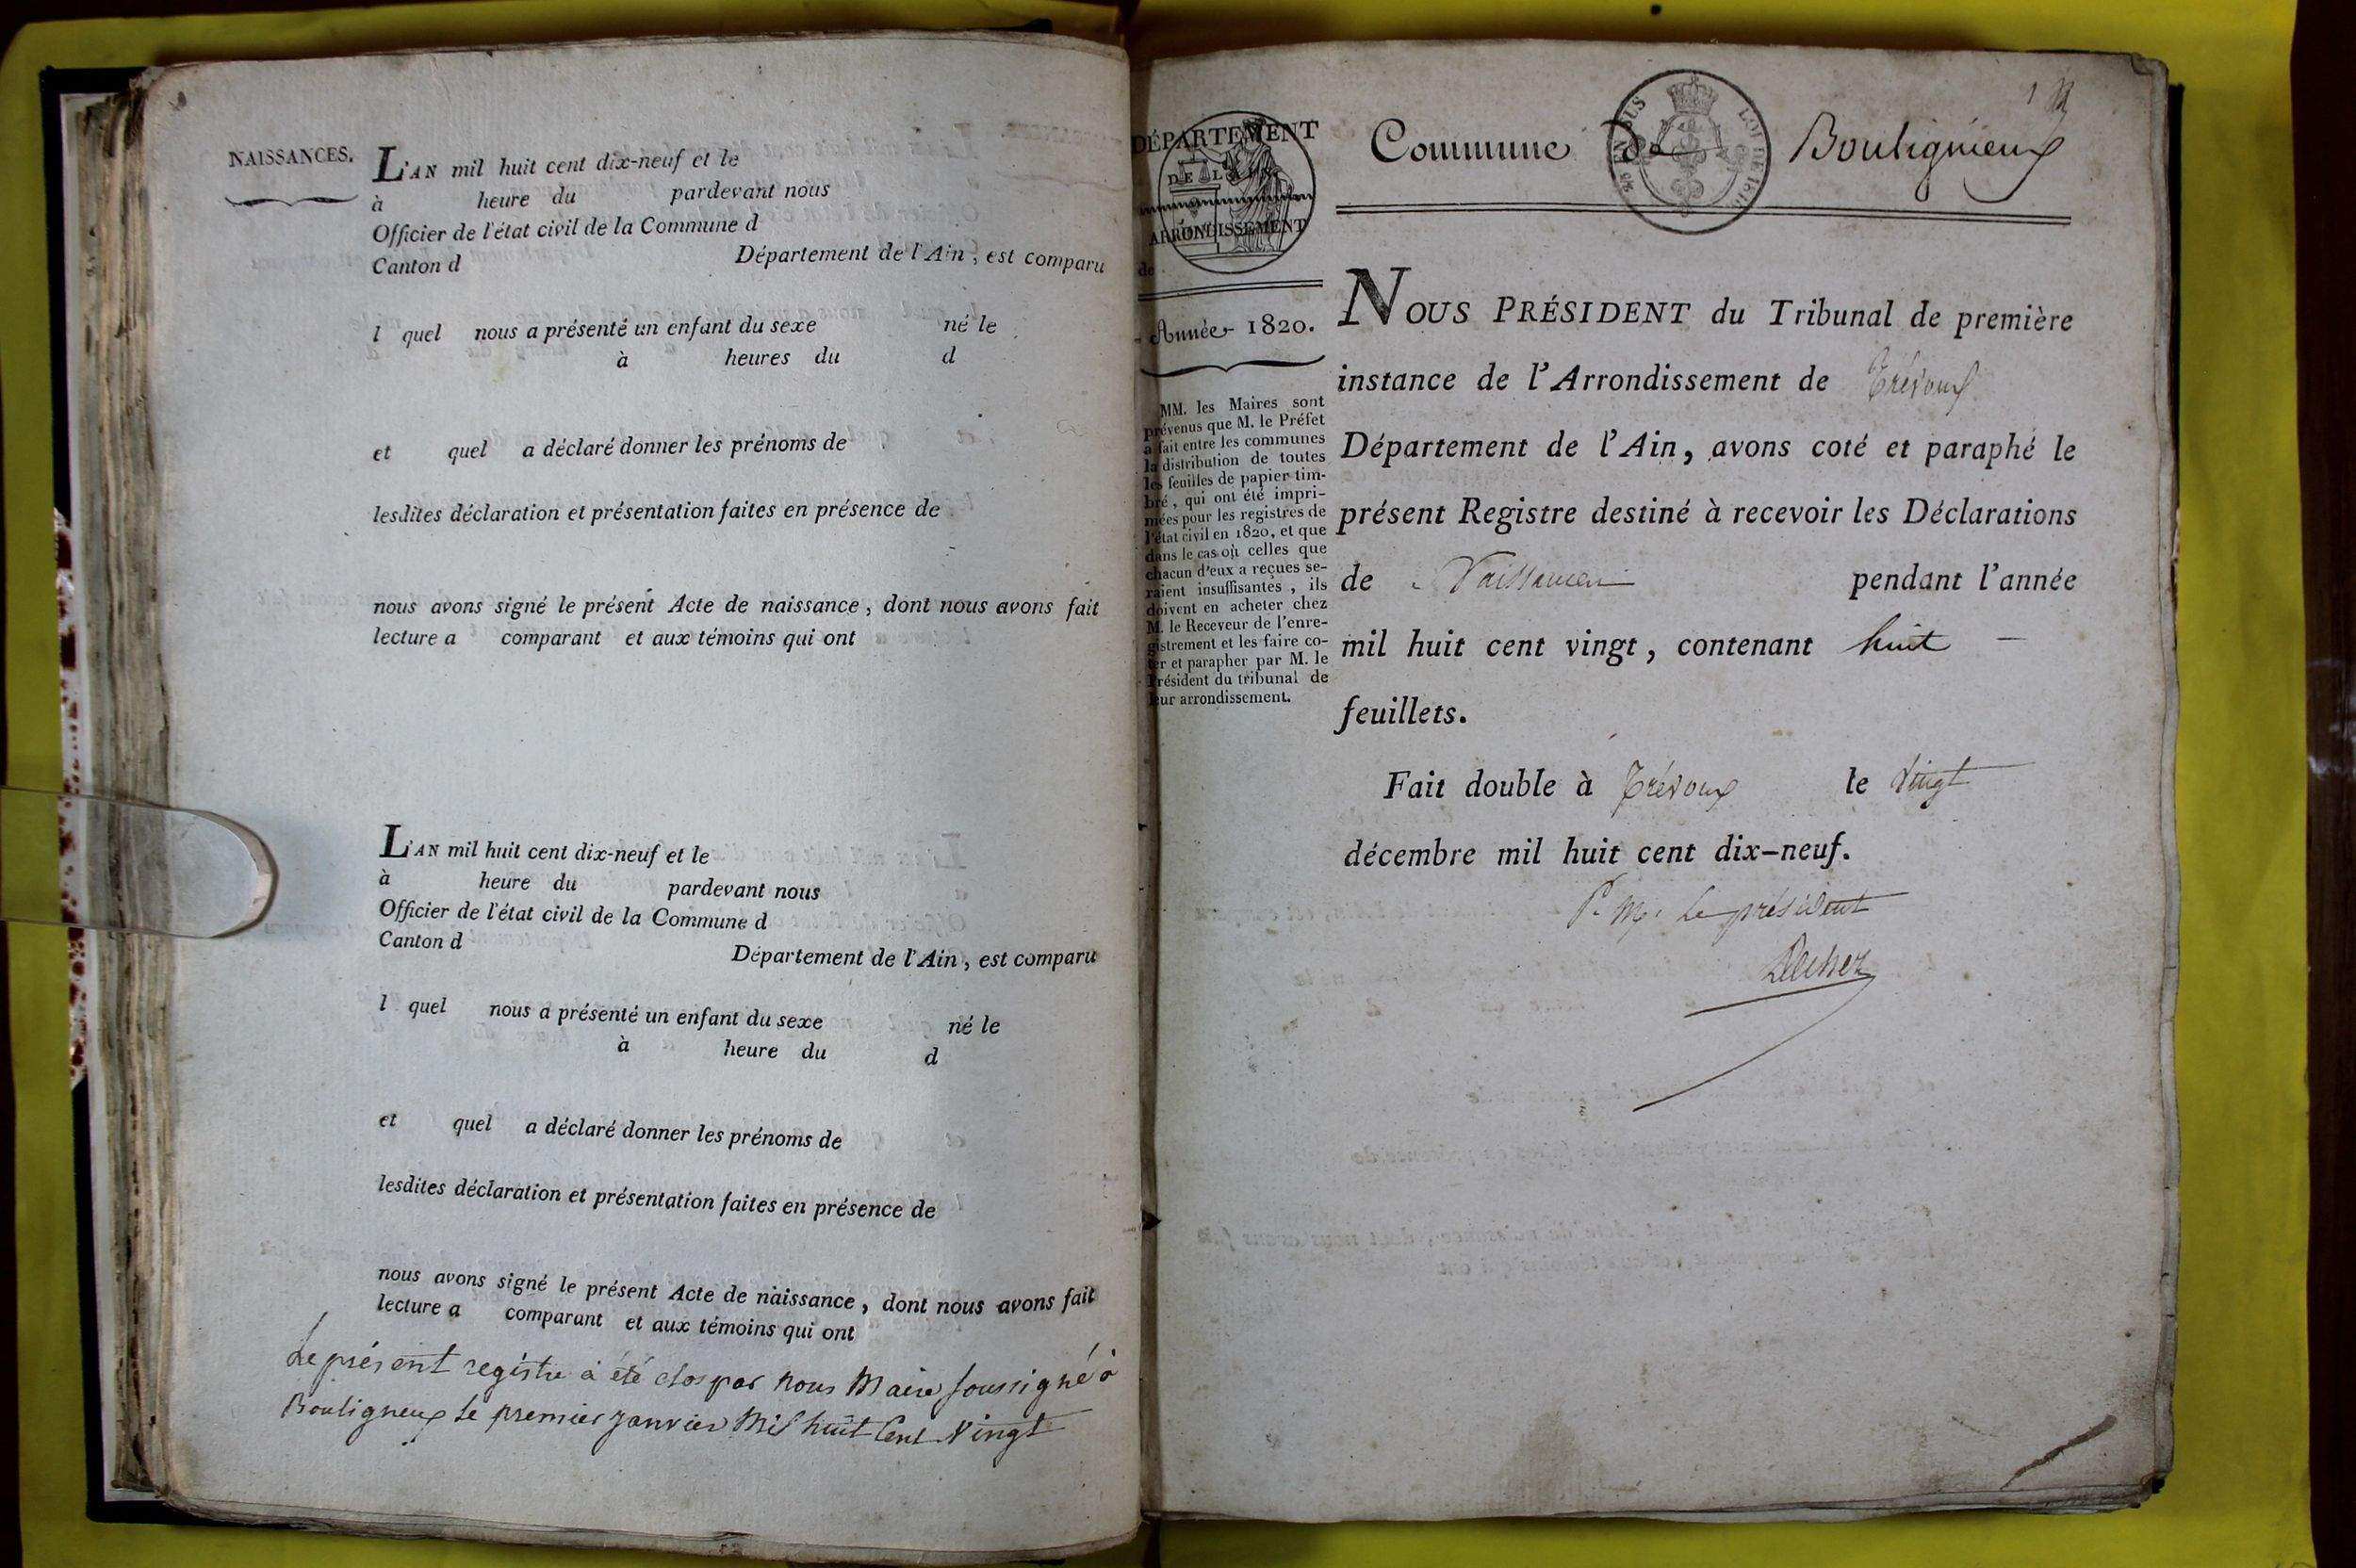 NAISSANCES.
L'AN mil huit cent dix-neuf et le
à heure du pardevant nous
Officier de l'état civil de la Commune d
Canton d Département de l'Ain, est comparu
l quel nous a présenté un enfant du sexe né le
à heures du d
et quel a déclaré donner les prénoms de
lesdites déclaration et présentation faites en présence de
nous avons signé le présent Acte de naissance, dont nous avons fait
lecture a comparant et aux témoins qui ont
L'AN mil huit cent dix-neuf et le
à heure du pardevant nous
Officier de l'état civil de la Commune d
Canton d Département de l'Ain, est comparu
l quel nous a présenté un enfant du sexe né le
à heure du d
et quel a déclaré donner les prénoms de
lesdites déclaration et présentation faites en présence de
nous avons signé le présent Acte de naissance, dont nous avons fait
lecture a comparant et aux témoins qui ont
Le présent registre a été clos par nous Maire soussigné à
Bouligneux le premier janvier Mil huit Cent Vingt
DÉPARTEMENT
DE L'AIN
ARRONDISSEMENT
de
Année 1820.
MM. les Maires sont
prévenus que M. le Préfet
a fait entre les communes
la distribution de toutes
les feuilles de papier tim-
bré, qui ont été impri-
mées pour les registres de
l'état civil en 1820, et que
dans le cas où celles que
chacun d'eux a reçues se-
raient insuffisantes, ils
doivent en acheter chez
M. le Receveur de l'enre-
gistrement et les faire co-
ter et parapher par M. le
Président du tribunal de
leur arrondissement.
1
Commune de Bouligneux
NOUS PRÉSIDENT du Tribunal de première
instance de l'Arrondissement de Trévoux
Département de l'Ain, avons coté et paraphé le
présent Registre destiné à recevoir les Déclarations
de Naissances pendant l'année
mil huit cent vingt, contenant huit
feuillets.
Fait double à Trévoux le vingt
décembre mil huit cent dix-neuf.
P. Mr. Le président